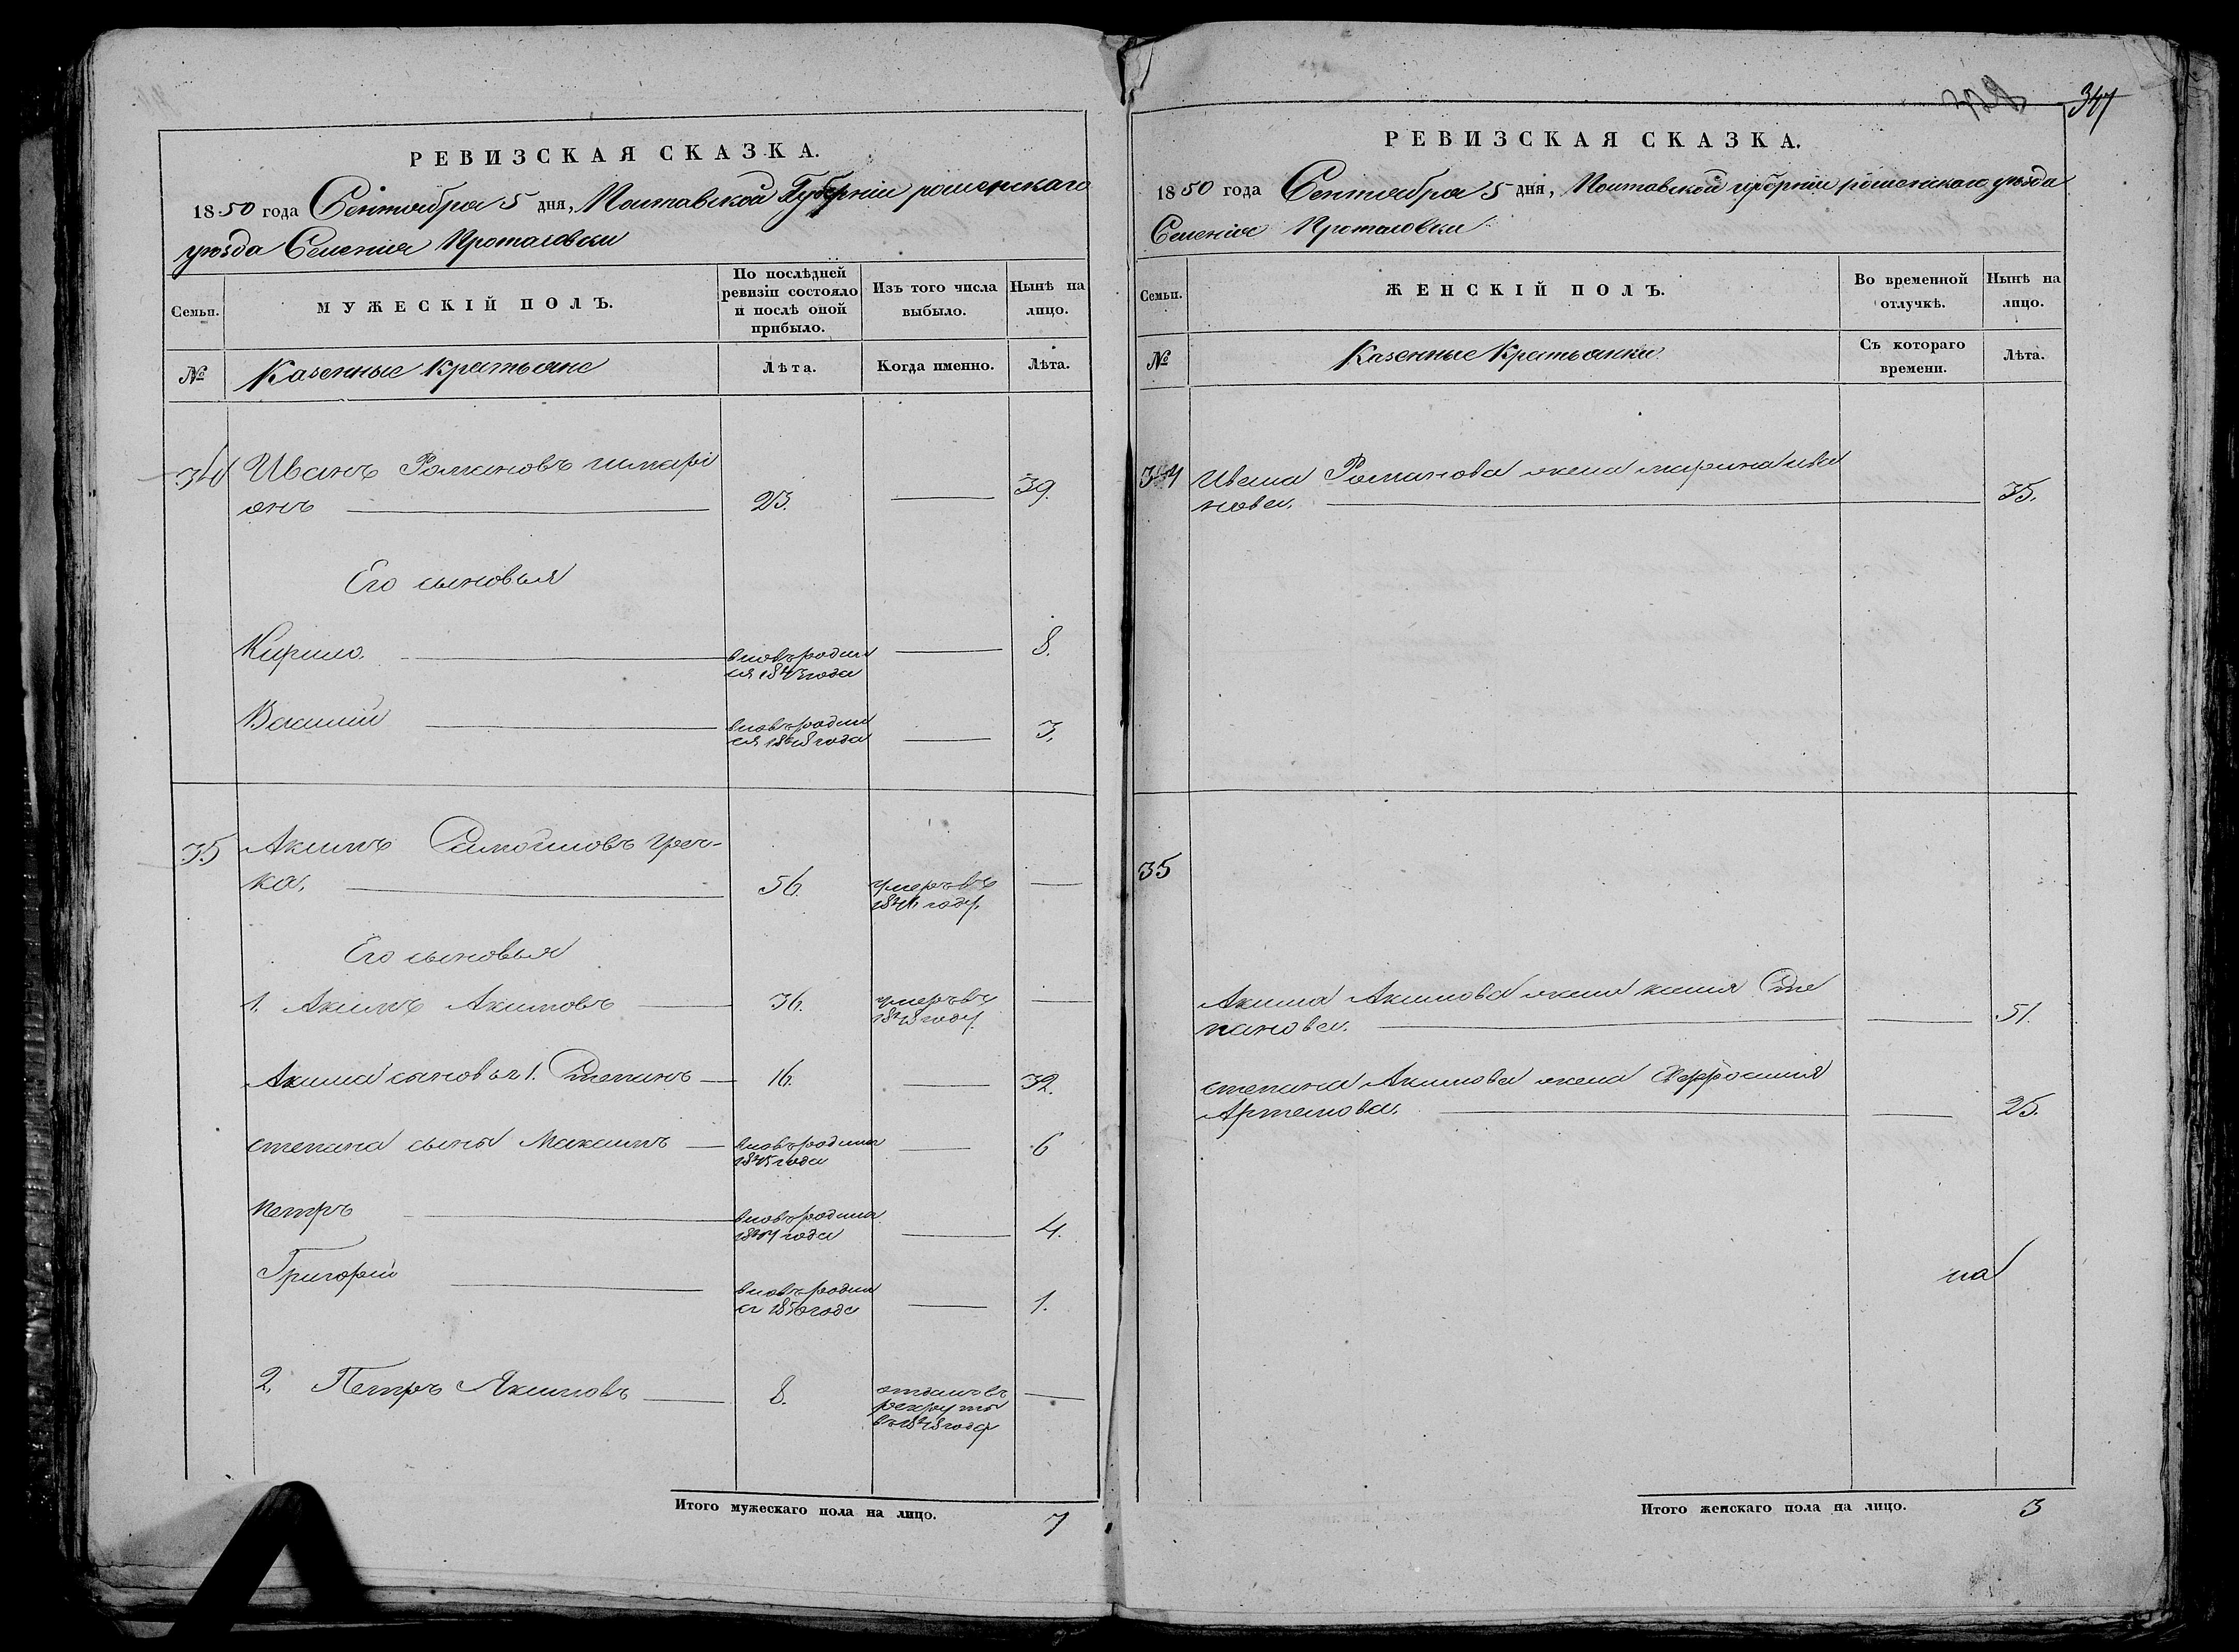 РЕВИЗСКАЯ СКАЗКА.
1850 года Сентября 5 дня, Полтавской Губерніи роменскаго
уезда Селенія Протасовки
Семьи.
МУЖЕСКІЙ ПОЛЪ.
По послѣдней ревизіи состояло и послѣ оной прибыло.
Изъ того числа выбыло.
Нынѣ на лицо.
№
Казенные Крестьяне
Лѣта.
Когда именно.
Лѣта.
34 Иванъ Романовъ
23. 39.
Его сыновья
Кирило. вновь родил 8.
ся 1843 года
Василій вновь родил
ся 1848 года 3.
35 Акимъ Самойловъ Греч-
ка. 56. умеръ въ
1841 году.
Его сыновья
1. Акимъ Акимовъ 36. умеръ въ
1848 году.
Акима сыновья 1. Степанъ 16. 32.
степана сыны Максимъ вновь родил 6
1845 года
петръ вновь родил
1847 года 4.
Григорій
вновь родил
ся 1850 года 1.
2. Петръ Якимовъ 8. отданъ въ
рекруты
въ 1848 году
Итого мужескаго пола на лицо. 7
347
РЕВИЗСКАЯ СКАЗКА.
1850 года Сентября 5 дня, Полтавской губерніи роменскаго уезда
Селенія Протасовки
Семьи.
ЖЕНСКІЙ ПОЛЪ.
Во временной отлучкѣ.
Нынѣ на лицо.
№
Казенные Крестьянки
Съ котораго времени.
Лѣта.
34 Ивана Романова жена марина ива
нова. 35.
35
Акима Акимова жена Сте
панова. 51.
степана Акимова жена Ефросинія
Артемова. 25.
на
Итого женскаго пола на лицо. 3